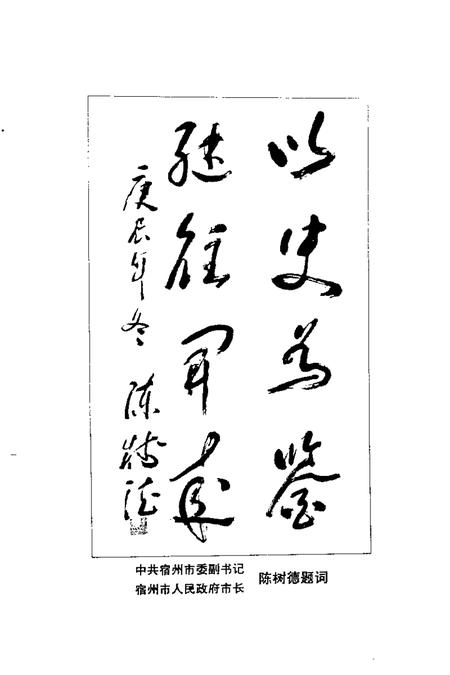 以史为鉴
继往开来
庚辰年冬 陈树德
中共宿州市委副书记
宿州市人民政府市长
陈树德题词